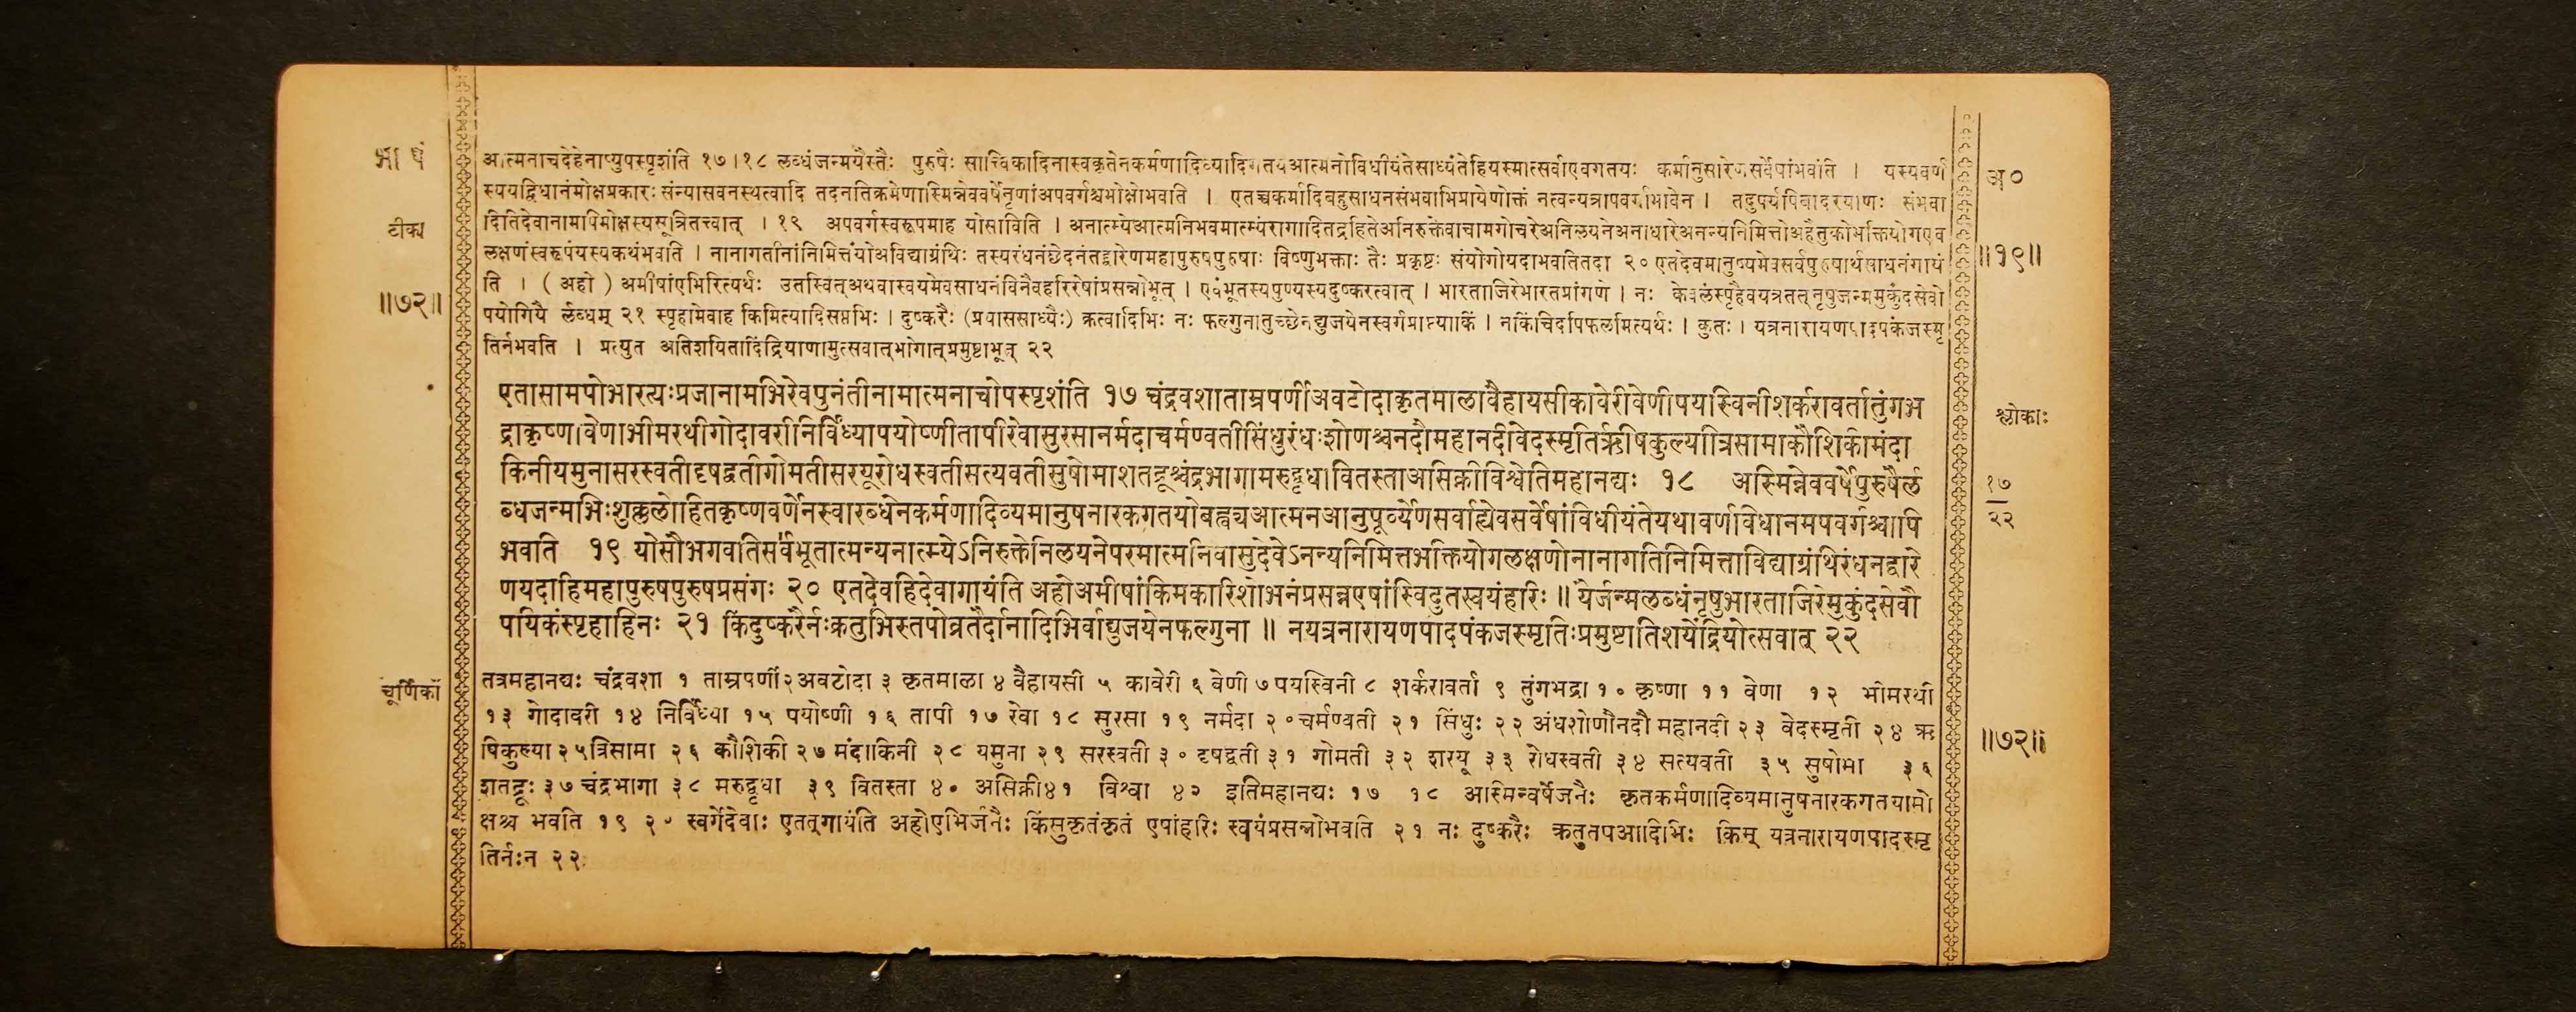 भा पं
आत्मनाचदेहेनाप्युपस्पृशंति १७।१८ लब्धंजन्मयैस्तैः पुरुषैः सात्त्विकादिनास्वकृतेनकर्मणादिव्यादिगतयआत्मनोविधीयंतेसाध्यंतेहियस्मात्सर्वाएवगतयः कर्मानुसारेणसर्वेषांभवंति । यस्यवर्ण
स्पयद्विधानंमोक्षप्रकारः संन्यासवनस्थत्वादि तदनतिक्रमेणास्मिन्नेववर्षेनृणांअपवर्गश्चमोक्षोभवति । एतच्चकर्मादिबहुसाधनसंभवाभिप्रायेणोक्तं नत्वन्यत्रापवर्गाभावेन । तदुपर्यपिबादरायणः संभवा
अ०
टीका
दितिदेवानामपिमोक्षस्यसूत्रितत्त्वात् । १९ अपवर्गस्वरूपमाह योसाविति । अनात्म्येआत्मनिभवमात्म्यंरागादितद्रहितेअनिरुक्तेवाचामगोचरेअनिलयनेअनाधारेअनन्यनिमित्तोअहैतुकोभक्तियोगएव
लक्षणंस्वरूपंयस्यकथंभवति । नानागतीनांनिमित्तंयोअविद्याग्रंथिः तस्यरंधनंछेदनंतद्द्वारेणमहापुरुषपुरुषाः विष्णुभक्ताः तैः प्रकृष्टः संयोगोयदाभवतितदा २० एतदेवमानुष्यमेवसर्वपुरुषार्थसाधनंगायं
॥१९॥
ति । ( अहो ) अमीषांएभिरित्यर्थः उतस्वित्अथवास्वयमेवसाधनंविनैवहरिरेषांप्रसन्नोभूत् । एवंभूतस्यपुण्यस्यदुष्करत्वात् । भारताजिरेभारतप्रांगणे । नः केवलंस्पृहैवयत्रतत् नृषुजन्ममुकुंदसेवो
॥७२॥
पयोगियै र्लब्धम् २१ स्पृहामेवाह किमित्यादिसप्तभिः । दुष्करैः (प्रयाससाध्यैः) क्रत्वादिभिः नः फल्गुनातुच्छेनद्युजयेनस्वर्गप्राप्त्याकिं । नकिंचिदपिफलमित्यर्थः । कुतः । यत्रनारायणपादपंकजस्मृ
तिर्नभवति । प्रत्युत अतिशयितादिंद्रियाणामुत्सवात्भोगात्प्रमुष्टाभूत् २२
एतासामपोभारत्यःप्रजानामभिरेवपुनंतीनामात्मनाचोपस्पृशंति १७ चंद्रवशाताम्रपर्णीअवटोदाकृतमालावैहायसीकावेरीवेणीपयस्विनीशर्करावर्तातुंगभ
श्लोकाः
द्राकृष्णावेणाभीमरथीगोदावरीनिर्विंध्यापयोष्णीतापीरेवासुरसानर्मदाचर्मण्वतीसिंधुरंधःशोणश्चनदौमहानदीवेदस्मृतिर्ऋषिकुल्यात्रिसामाकौशिकीमंदा
किनीयमुनासरस्वतीदृषद्वतीगोमतीसरयूरोधस्वतीसत्यवतीसुषोमाशतद्रूश्चंद्रभागामरुद्वृधावितस्ताअसिक्नीविश्वेतिमहानद्यः १८ अस्मिन्नेववर्षेपुरुषैर्ल
१७
२२
ब्धजन्मभिःशुक्ललोहितकृष्णवर्णेनस्वारब्धेनकर्मणादिव्यमानुषनारकगतयोबह्व्यआत्मनआनुपूर्व्येणसर्वाह्येवसर्वेषांविधीयंतेयथावर्णविधानमपवर्गश्चापि
भवति १९ योसौभगवतिसर्वभूतात्मन्यनात्म्येऽनिरुक्तेनिलयनेपरमात्मनिवासुदेवेऽनन्यनिमित्तभक्तियोगलक्षणोनानागतिनिमित्ताविद्याग्रंथिरंधनद्वारे
णयदाहिमहापुरुषपुरुषप्रसंगः २० एतदेवहिदेवागायंति अहोअमीषांकिमकारिशोभनंप्रसन्नएषांस्विदुतस्वयंहरिः ॥ यैर्जन्मलब्धंनृषुभारताजिरेमुकुंदसेवौ
पयिकंस्पृहाहिनः २१ किंदुष्करैर्नःक्रतुभिस्तपोव्रतैर्दानादिभिर्वाद्युजयेनफल्गुना ॥ नयत्रनारायणपादपंकजस्मृतिःप्रमुष्टातिशयेंद्रियोत्सवात् २२
चूर्णिका
तत्रमहानद्यः चंद्रवशा १ ताम्रपर्णी२अवटोदा ३ कृतमाला ४ वैहायसी ५ कावेरी ६ वेणी ७ पयस्विनी ८ शर्करावर्ता ९ तुंगभद्रा १० कृष्णा ११ वेणा १२ भीमरथी
१३ गोदावरी १४ निर्विंध्या १५ पयोष्णी १६ तापी १७ रेवा १८ सुरसा १९ नर्मदा २० चर्मण्वती २१ सिंधुः २२ अंधशोणौनदौ महानदी २३ वेदस्मृती २४ ऋ
षिकुल्या २५त्रिसामा २६ कौशिकी २७ मंदाकिनी २८ यमुना २९ सरस्वती ३० दृषद्वती ३१ गोमती ३२ शरयू ३३ रोधस्वती ३४ सत्यवती ३५ सुषोमा ३६
॥७२॥
शतद्रूः ३७ चंद्रभागा ३८ मरुद्वृधा ३९ वितस्ता ४० असिक्नी४१ विश्वा ४२ इतिमहानद्यः १७ १८ अस्मिन्वर्षेजनैः कृतकर्मणादिव्यमानुषनारकगतयोमो
क्षश्च भवति १९ २० स्वर्गेदेवाः एतत्गायंति अहोएभिर्जनैः किंसुकृतंकृतं एषांहरिः स्वयंप्रसन्नोभवति २१ नः दुष्करैः क्रतुतपआदिभिः किम् यत्रनारायणपादस्मृ
तिर्नःन २२